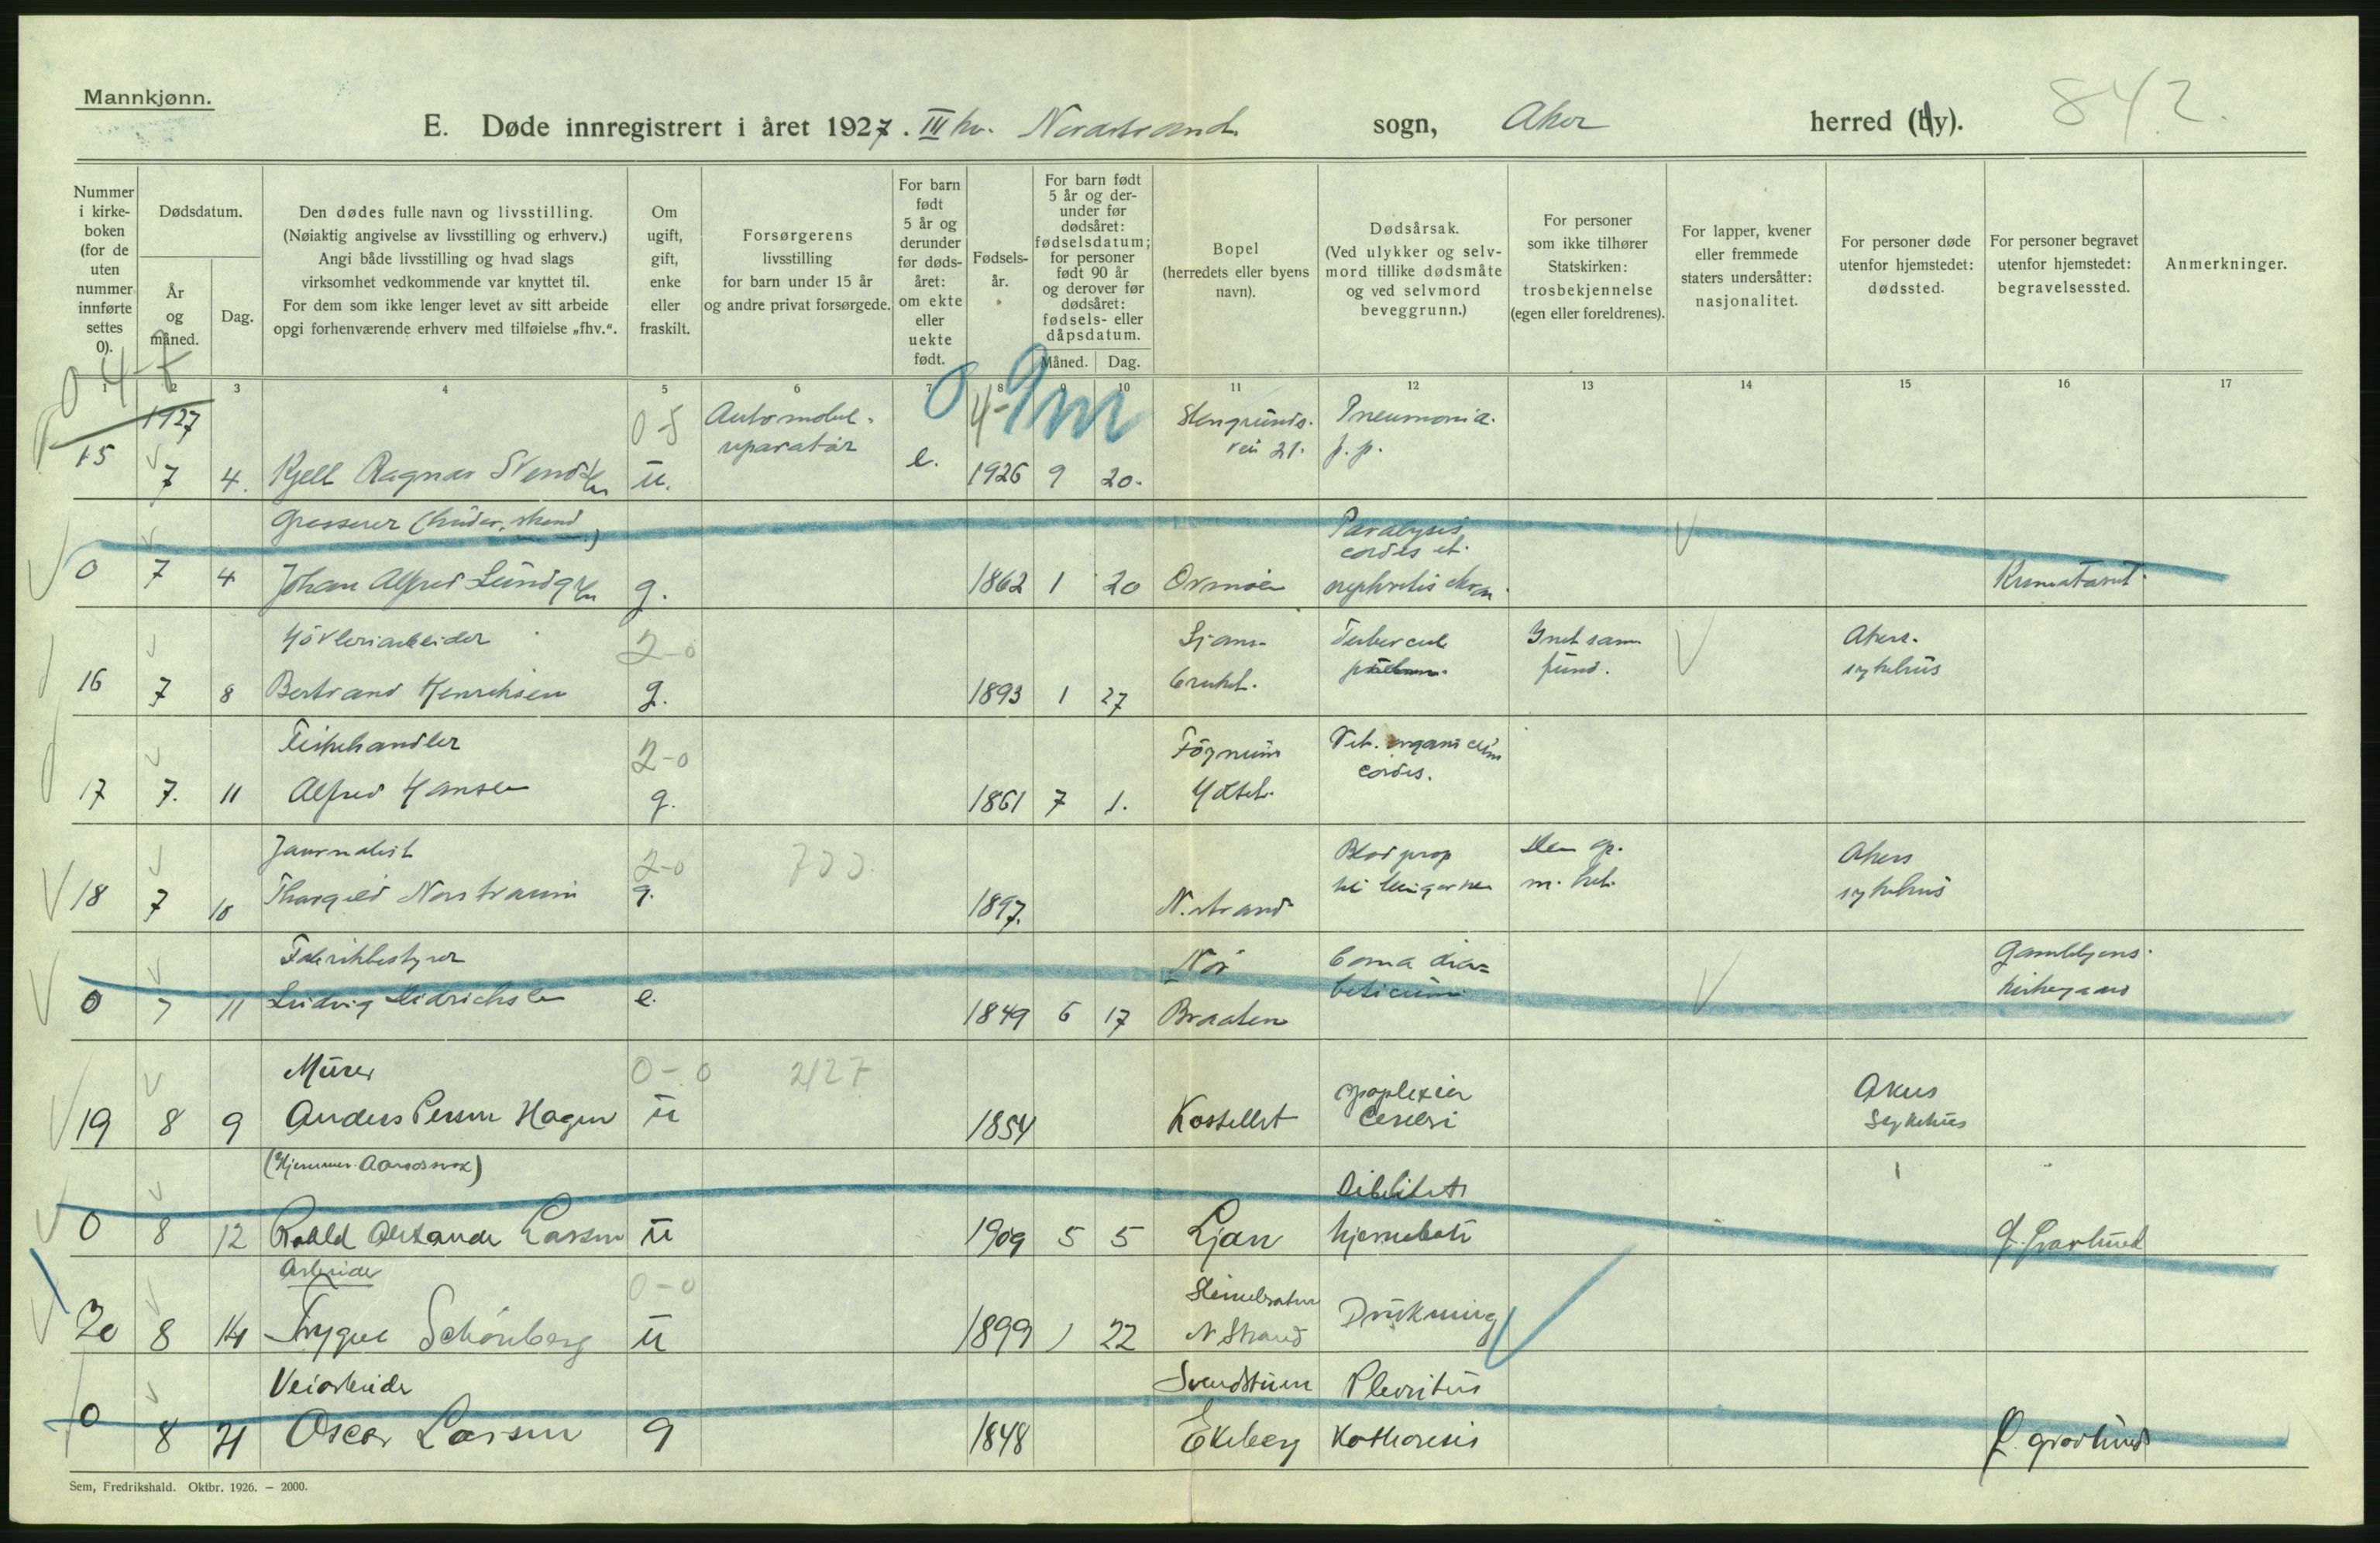 Mannkjønn.
842.
E. Døde innregistrert i året 1927. III kv. Nordstrand sogn, Aker herred (by).
Nummer i kirkeboken (for de uten nummer innførte settes 0).
Dødsdatum.
År og måned.
Dag.
Den dødes fulle navn og livsstilling.
(Nøiaktig angivelse av livsstilling og erhverv.)
Angi både livsstilling og hvad slags
virksomhet vedkommende var knyttet til.
For dem som ikke lenger levet av sitt arbeide
opgi forhenværende erhverv med tilføielse „fhv.“.
Om ugift, gift, enke eller fraskilt.
Forsørgerens
livsstilling
for barn under 15 år
og andre privat forsørgede.
For barn født 5 år og derunder før dødsåret: om ekte eller uekte født.
Fødselsår.
For barn født 5 år og derunder før dødsåret: fødselsdatum; for personer født 90 år og derover før dødsåret: fødsels- eller dåpsdatum.
Måned. Dag.
Bopel
(herredets eller byens
navn).
Dødsårsak.
(Ved ulykker og selvmord tillike dødsmåte
og ved selvmord
beveggrunn.)
For personer
som ikke tilhører
Statskirken:
trosbekjennelse
(egen eller foreldrenes).
For lapper, kvener
eller fremmede
staters undersåtter:
nasjonalitet.
For personer døde
utenfor hjemstedet:
dødssted.
For personer begravet
utenfor hjemstedet:
begravelsessted.
Anmerkninger.
1 2 3 4 5 6 7 8 9 10 11 12 13 14 15 16 17
04-7
1927 0-5 Automobil- 4-9m Pneumonia
reparatør vei 21. p. p.
15 7 4. Kjell Ragnar Svendsen u. e. 1926 9 20.
Grosserer Paralysis
cordis et
0 7 4 Johan Alfred Lundgren g. 1862 1 20 Ormøen nephritis chron. Krematoriet
Høvleriarbeider 2-0 Ljans- Tubercul Akers
16 7 8 Bertrand Henriksen g. 1893 1 27 bruket. pulmon. sykehus
Fiskehandler 2-0 Vit. organicum
17 7. 11 Alfred Hansen g. 1861 7 1. cordis.
Journalist 2-0 Blodprop Akers
18 7 10 Thorgild Norstraum g. 1897. N.strand til lungerne sykehus
Fabrikbestyrer Coma dia= Gamlebyens
0 7 11 Ludvig Didrichsen e. 1849 6 17 Braaten beticum kirkegaard
Murer 0-0 2127 apoplexia Akers
19 8 9 Anders Persen Hagen u 1854 Kastellet Cerebri Sykehus
Debilitet
0 8 12 Roald Alexander Larsen u 1909 5 5 Ljan
Arbeider 0-0
20 8 14 Trygve Schönberg u 1899 1 22 N Strand Drukning
Veiarbeider Svendstuen Pleuritus
0 8 21 Oscar Larsen g 1848 Ekeberg Ø. gravlund
Sem, Fredrikshald. Oktbr. 1926. – 2000.